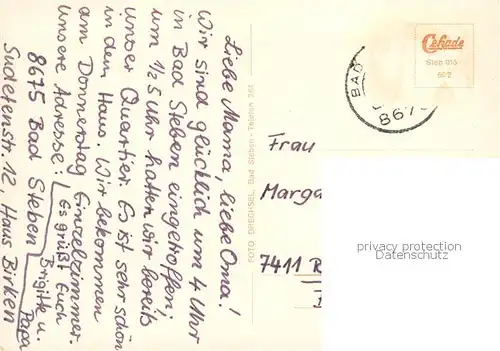 Liebe Mama, liebe Oma!
Wir sind glücklich um 4 Uhr
in Bad Steben eingetroffen;
um 1/2 5 Uhr hatten wir bereits
unser Quartier. Es ist sehr schön
in dem Haus. Wir bekommen
am Donnerstag Einzelzimmer.
unsere Adresse:
8675 Bad Steben
Sudetenstr. 12, Haus Birken
Es grüßt Euch
Brigitte u.
Papa
FOTO DRECHSEL, Bad Steben - Telefon 261
Cekade
Steb
BAD
867
Frau
Marga
7411 R
privacy protection
Datenschutz